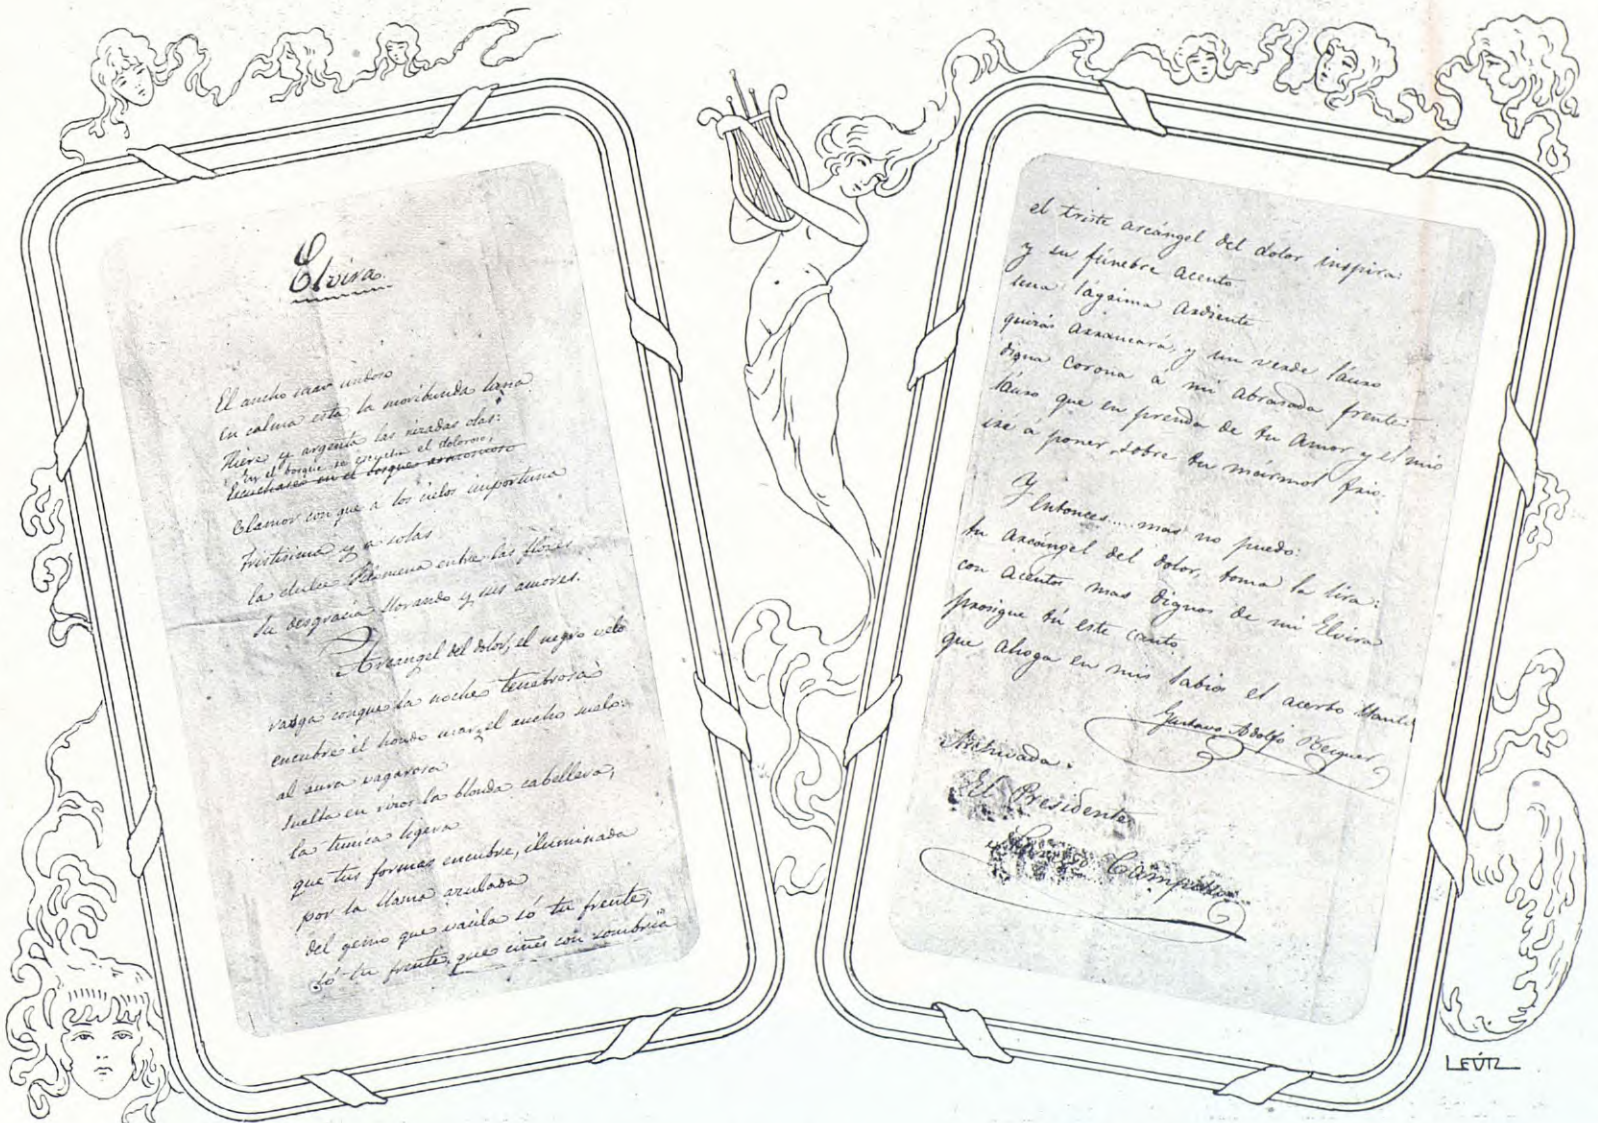 Elvira
El ancho mar undoso
en calma está la moribunda luna
hiere y argenta las rizadas olas:
en el bosque se escucha el doloroso,
Escuchase en el bosque armonioso
Clamor con que a los cielos importuna
tristisima y a solas
la dulce Filomena entre las flores
su desgracia llorando y sus amores.
Arcangel del dolor, el negro velo
rasga conque la noche tenebrosa
encubre el hondo mar, el ancho suelo:
al aura vagarosa
suelta en rizos la blonda cabellera,
la tunica ligera
que tus formas encubre, iluminada
por la llama azulada
del genio que vacila só tu frente,
só tu frente, que ciñes con sombria
el triste arcángel del dolor inspira:
y su fúnebre acento
una lágrima ardiente
quizás arrancará, y un verde lauro
digna corona a mi abrasada frente:
lauro que en prenda de tu amor y el mio
iré á poner sobre tu mármol frio.
Y entonces..... mas no puedo:
tu arcángel del dolor, toma la lira:
con acentos mas dignos de mi Elvira
prosigue tú este canto
que ahoga en mis labios el acerbo llanto
Gustavo Adolfo Becquer
Archivada.
El Presidente
LEÚTZ